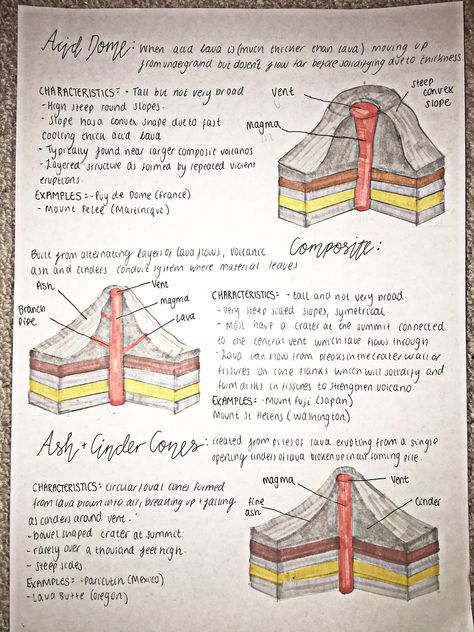 Acid Dome: When acid lava is (much thicker than lava) moving up
from undeground but dosen't flow far before solidifying due to thickness
CHARACTERISTICS = - Tall but not very broad
- High steep round slopes.
- Slope has a convex shape due to fast
cooling thick acid lava
- Typically found near larger composit volcanos
- Layered structure as formed by repeated violent
eruptions.
EXAMPLES = - Puy de Dome (France)
- Mount Pelee (Martinique)
vent
magma
steep
convex
slope
Composite:
Built from alternating layers of lava flows, volcanic
ash and cinders conduit system where material leaves.
Ash
Vent
magma
Lava
Branch
pipe
CHARACTERISTICS = - tall and not very broad.
- Very steep sided slopes, symetrical.
- Most have a crater at the summit connected
to the central vent which lave flows through
- Lava can flow from breaks in the crater wall or
fissures on cone flanks which will solidify and
form in fissures to strengthen volcano.
EXAMPLES = - Mount Fuji (Japan)
Mount St Helens (Washington)
Ash + Cinder Cones: created from piles of lava erupting from a single
opening cinders of lava broken up in air forming pile.
CHARACTERISTICS = circular/oval cones formed
from lava blown into air, breaking up + falling
as cinders around vent.
- bowel shaped crater at summit
- rarely over a thousand feet high.
- Steep sides.
EXAMPLES = - Paricutin (Mexico)
- Lava Butte (Oregon)
magma
vent
fine
ash
cinder